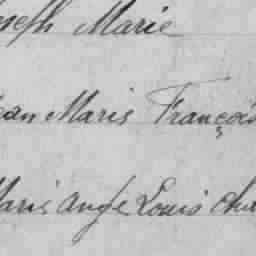 Joseph Marie
Jean Maris François
Maris Ange Louis